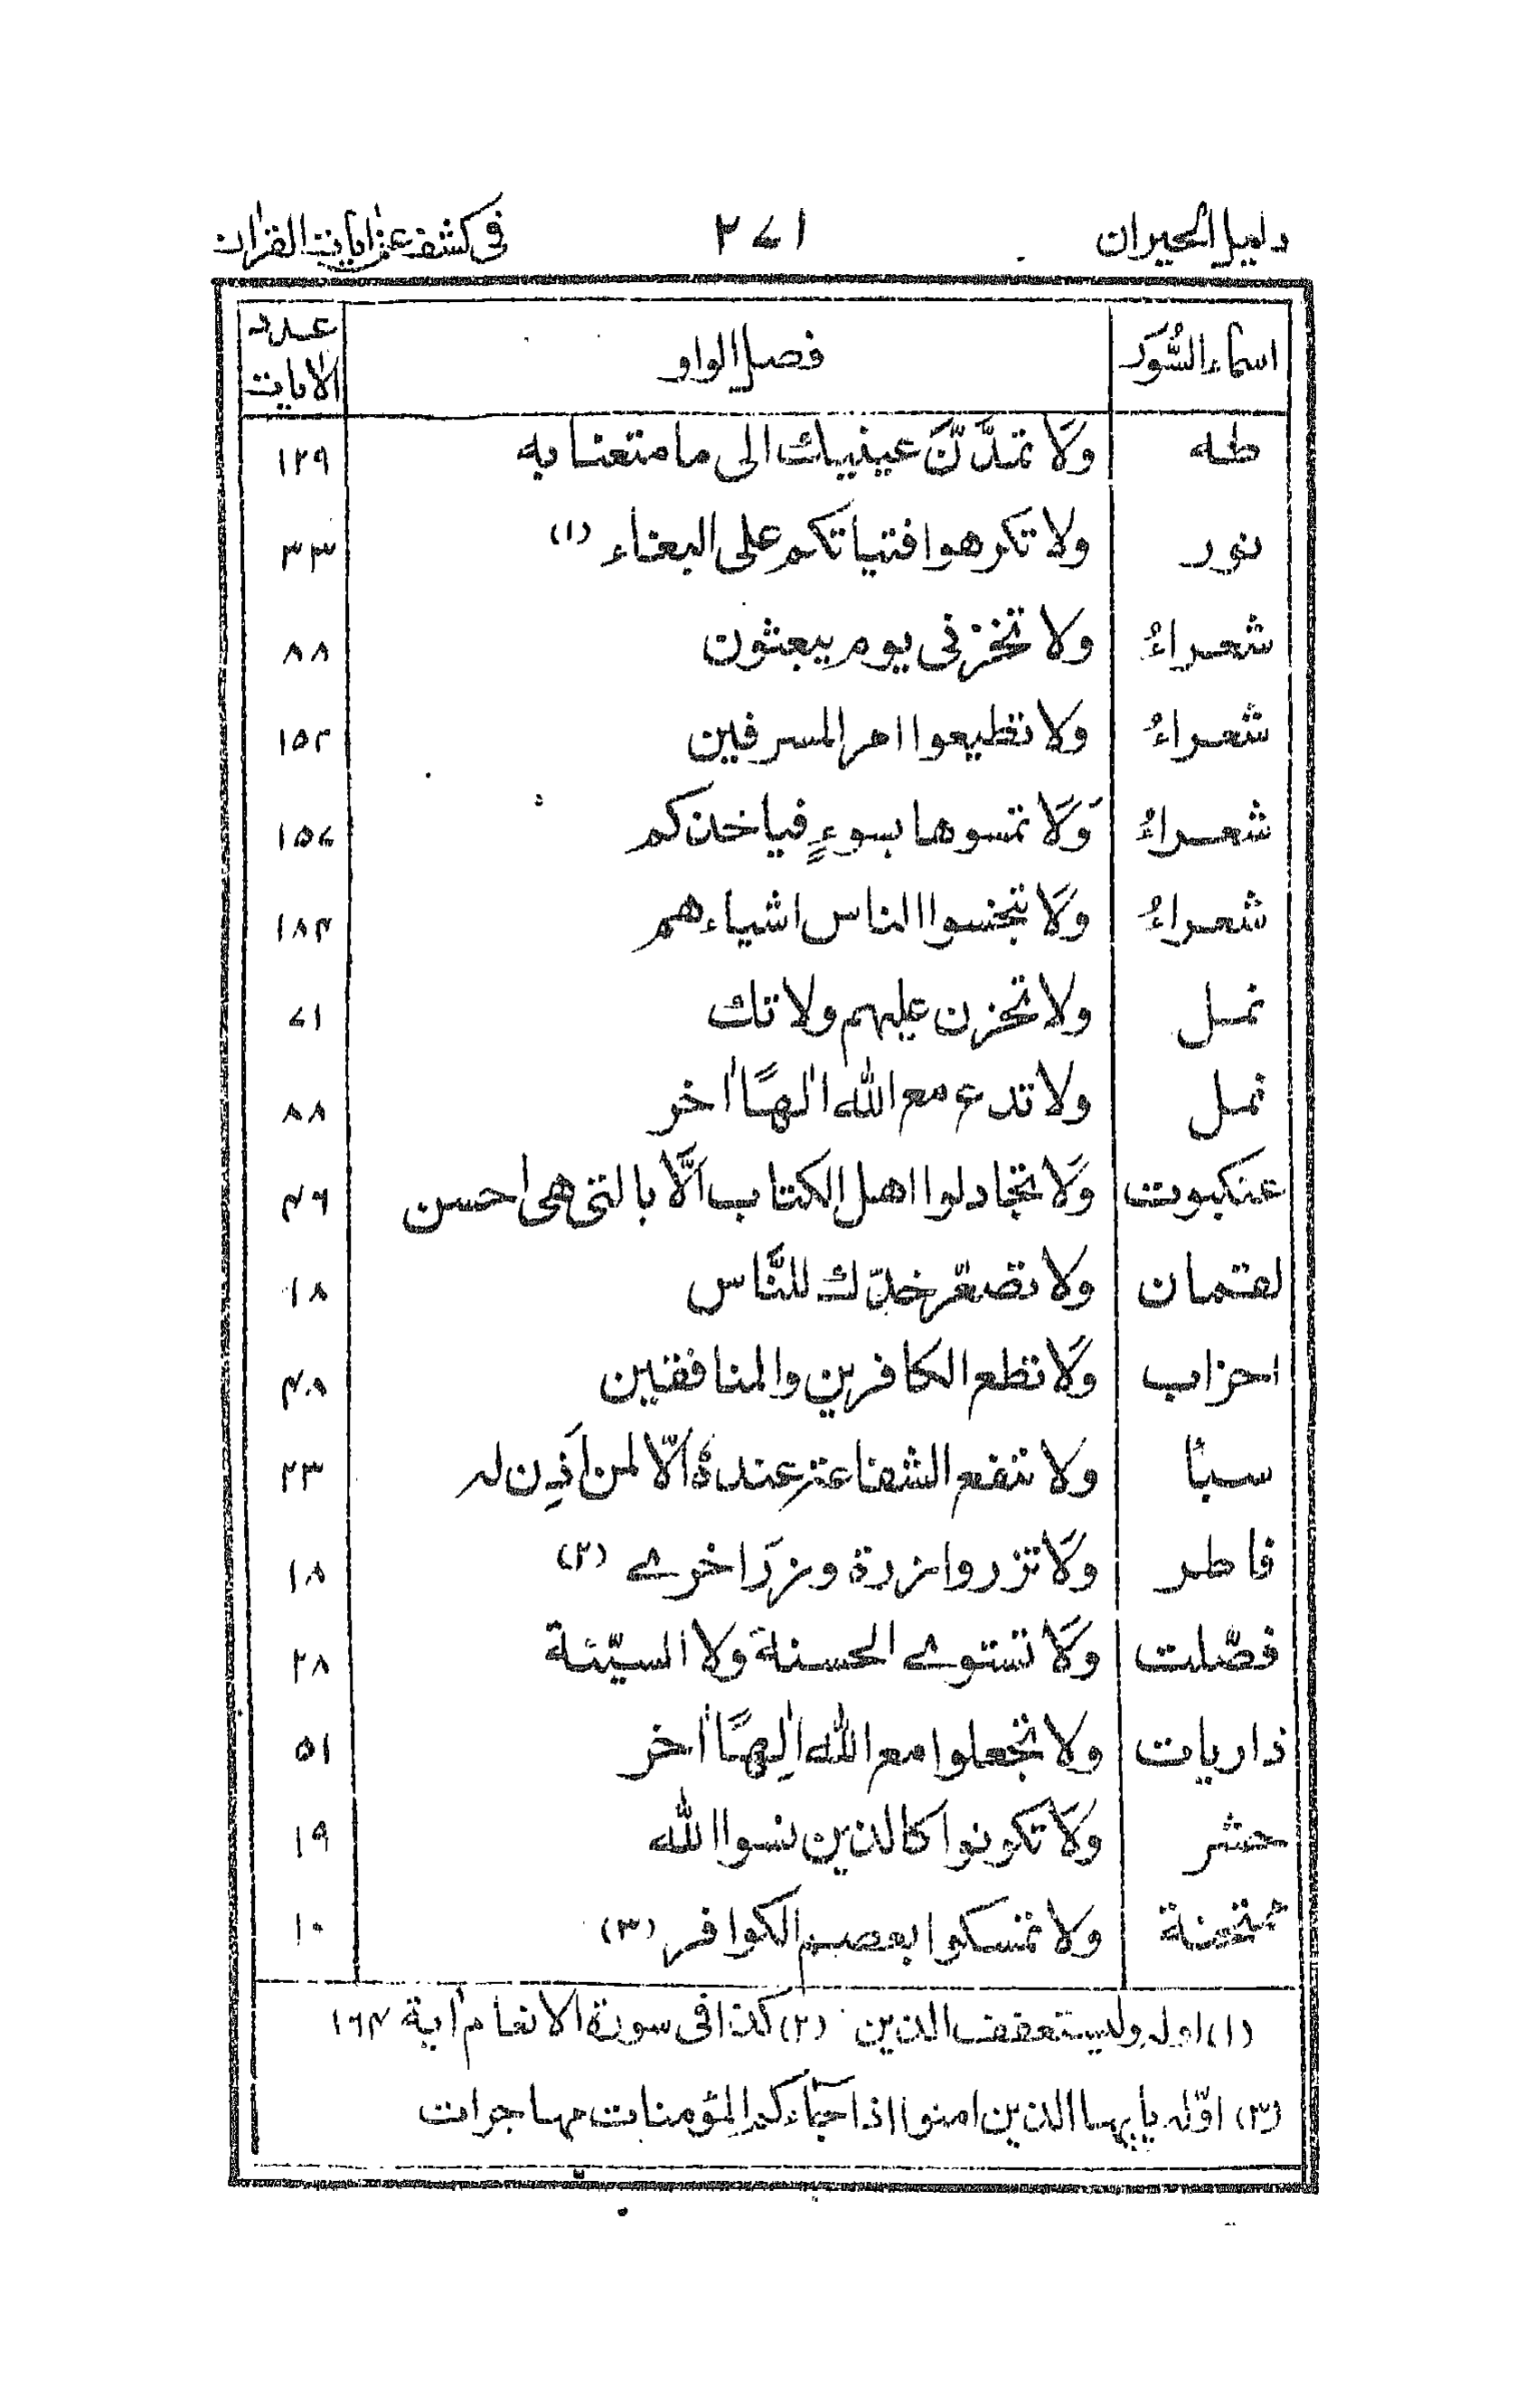 دليل الحيران ٢٧١ فى كشف عن اٰيات القراٰن
اسماء السُّوَر فصل الواو عدد الاٰيات
طه وَلَا تمدَّنَّ عينيك الى ما متعنا به ١٢٩
نور ولا تكرهوا فتياتكم على البغاء (١) ٣٣
شعراءُ ولا تخزنى يوم يبعثون ٨٨
شعراءُ ولا تطيعوا امر المسرفين ١٥٢
شعراءُ وَلَا تمسوها بسوءٍ فياخذكم ١٥٧
شعراءُ وَلَا تبخسوا الناس اشياءهم ١٨٣
نمل ولا تحزن عليهم ولا تك ٧١
نمل ولا تدع مع الله الٰهًا اٰخر ٨٨
عنكبوت وَلَا تجادلوا اهل الكتاب الَّا بالتى هى احسن ٤٦
لقمان ولا تصعّر خدّك للنَّاس ١٨
احزاب وَلَا تطع الكافرين والمنافقين ٤٨
سبأ ولا تنفع الشفاعة عندهٗ الّا لمن اَذِن له ٢٣
فاطر وَلَا تزر وازرة وزرَ اخرے (٢) ١٨
فصّلت وَلَا تستوے الحسنة ولا السيّئة ٢٨
ذاريات ولا تجعلوا مع الله اِلٰهًا اٰخر ٥١
حشر وَلَا تكونوا كالذين نسوا الله ١٩
ممتحنة ولا تمسكوا بعصم الكوافر (٣) ١٠
(١) اوله وليستعفف الذين (٢) كذا فى سورة الانعام اٰية ١٦٤
(٣) اوّله يايها الذين امنوا اذا جآءكم المؤمنات مهاجرات